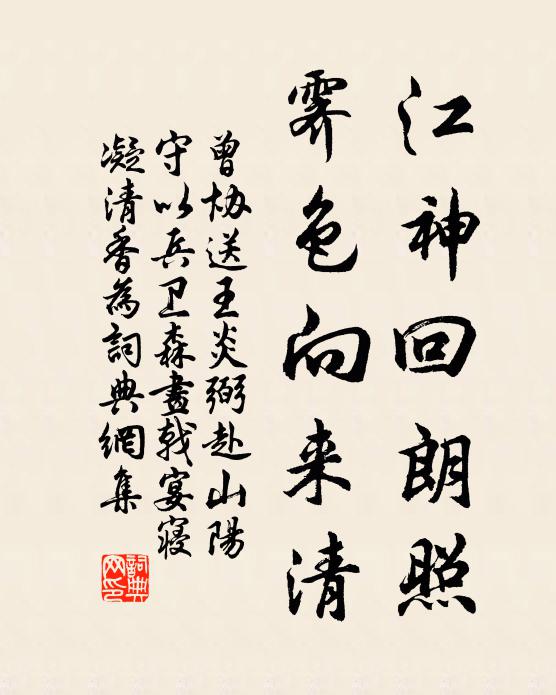 江神回朗照
霁色向来清
曾协送王炎弼赴山陽
守以兵卫森畫戟宴寝
凝清香為詞典網集
詞典网印